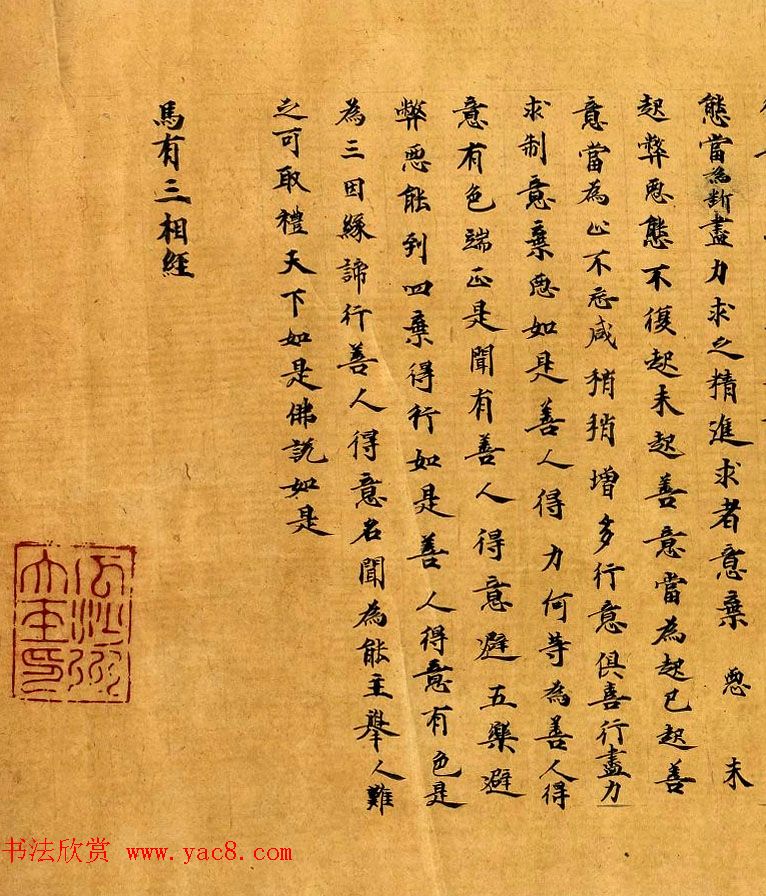 態當為斷盡力求之精進求者意棄惡未
起弊惡態不復起未起善意當為起已起善
意當為止不忘咸稍稍增多行意俱喜行盡力
求制意棄惡如是善人得力何等為善人得
意有色端正是聞有善人得意避五樂避
弊惡能到四棄得行如是善人得意有色是
為三因緣諦行善人得意名聞為能主舉人難
之可取禮天下如是佛說如是
馬有三相經
瓜沙州
大王印
书法欣赏 www.yac8.com